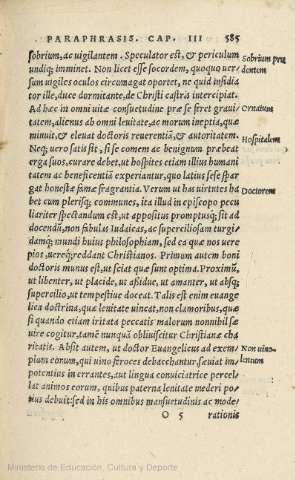 PARAPHRASIS. CAP. III 585
sobrium, ac vigilantem. Speculator est, & periculum
undiq; imminet. Non licet esse socordem, quoquo ver
sum vigiles oculos circumagat oportet, ne quid insidia
tor ille, duce dormitante, de Christi castris intercipiat.
Ad hæc in omni vitæ consuetudine præ se feret gravi
tatem, alienus ab omni levitate, ac morum ineptia, quæ
minuit, & elevat doctoris reverentiã, & autoritatem.
Neq; vero satis sit, si se comem ac benignum præbeat
erga suos, curare debet, ut hospites etiam illius humani
tatem ac beneficentiã experiantur, quo latius sese spar
gat honestæ famæ fragrantia. Verum ut has virtutes ha
bet cum plerisq; communes, ita illud in episcopo pecu
liariter spectandum est, ut appositus promptusq; sit ad
docendũ, non fabulas Iudaicas, ac superciliosam turgi
damq; mundi huius philosophiam, sed ea quæ nos vere
pios, vereq; reddant Christianos. Primum autem boni
doctoris munus est, ut sciat quæ sunt optima. Proximũ,
ut libenter, ut placide, ut assidue, ut amanter, ut absq;
supercilio, ut tempestive doceat. Talis est enim euange
lica doctrina, quæ lenitate vincat, non clamoribus, quæ
si quando etiam irritata peccatis malorum nonnihil sæ
vire cogitur, tamẽ nunquã obliviscitur Christianæ cha
ritatis. Absit autem, ut doctor Euangelicus ad exem
plum eorum, qui vino feroces debacchantur, sæviat im
potentius in errantes, aut lingua conviciatrice percel
lat animos eorum, quibus paterna lenitate mederi po
tius debuit: sed in his omnibus mansuetudinis ac mode
O 5 rationis
Sobrium pru
dentem
Ornatum
Hospitalem
Doctorem
Non vino-
lentum
Ministerio de Educación, Cultura y Deporte